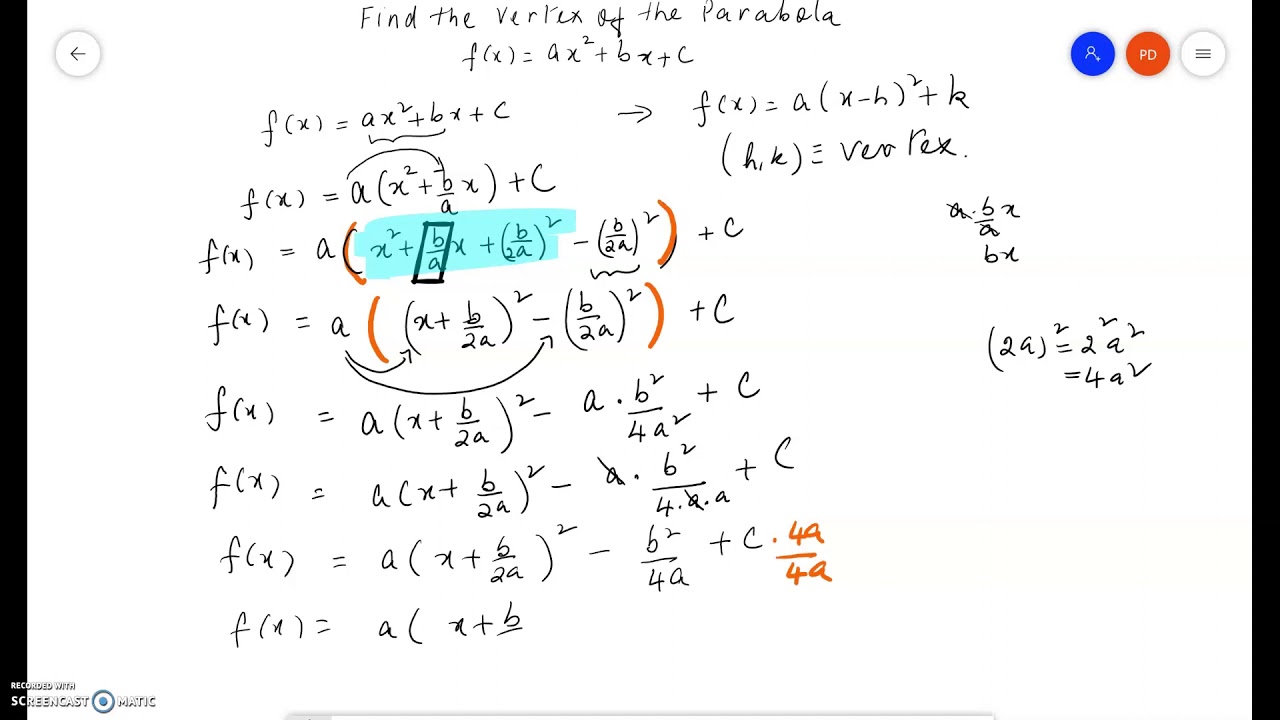 Find the vertex of the Parabola
f(x) = ax² + bx + c
PD
f(x) = ax² + bx + c → f(x) = a(x-h)² + k
(h,k) ≡ vertex.
f(x) = a(x² + b/a x) + c
a · b/a x
bx
f(x) = a(x² + b/a x + (b/2a)² - (b/2a)²) + c
f(x) = a((x + b/2a)² - (b/2a)²) + c
(2a)² = 2²a²
= 4a²
f(x) = a(x + b/2a)² - a · b²/4a² + c
f(x) = a(x + b/2a)² - a · b²/4·a·a + c
f(x) = a(x + b/2a)² - b²/4a + c · 4a/4a
f(x) = a( x + b
RECORDED WITH
SCREENCAST MATIC